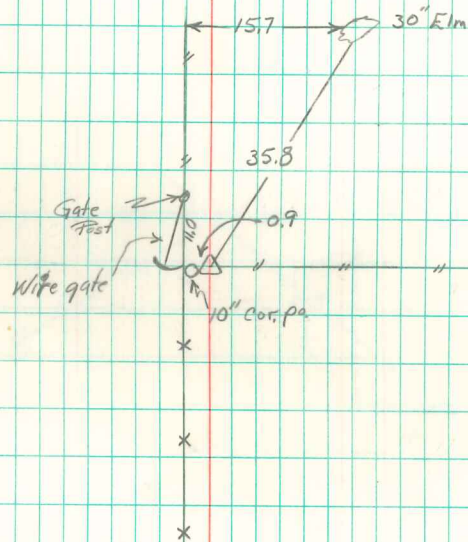 15.7
30" Elm
35.8
Gate
Post
11.0
0.9
Wire gate
10" cor. po.